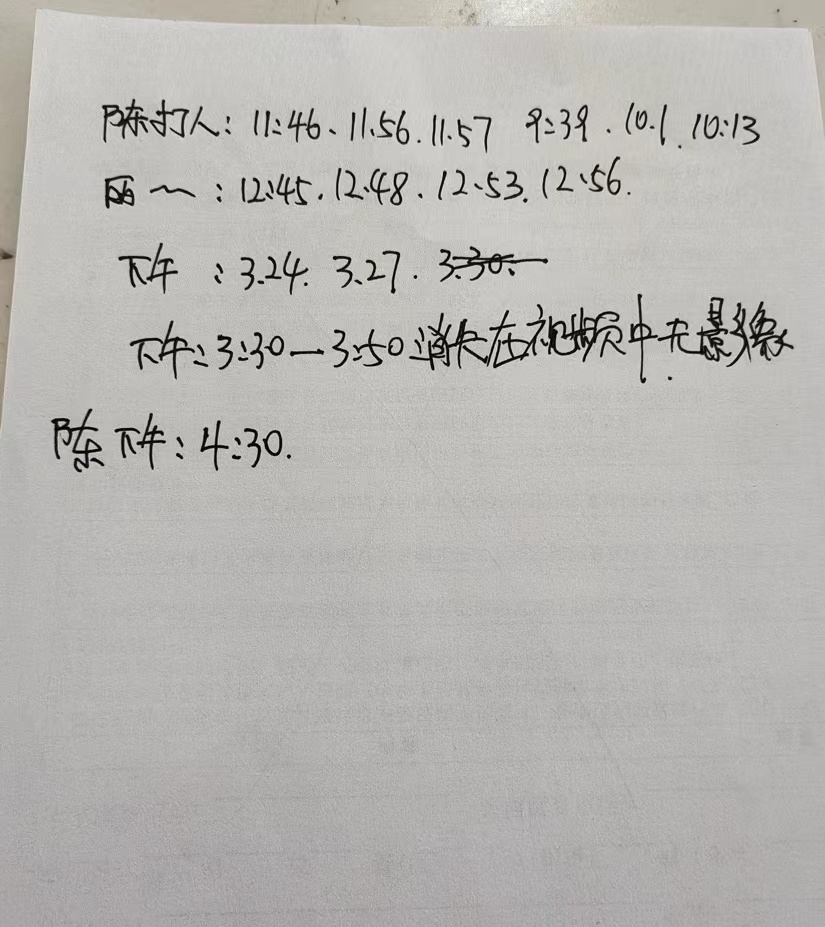 陈打人：11:46、11.56.11.57 9:39.10.1.10:13
丽～：12:45.12.48.12.53.12.56.
下午：3.24. 3.27. 3.30.
下午：3:30—3:50消失在视频中无影像.
陈下午：4:30.